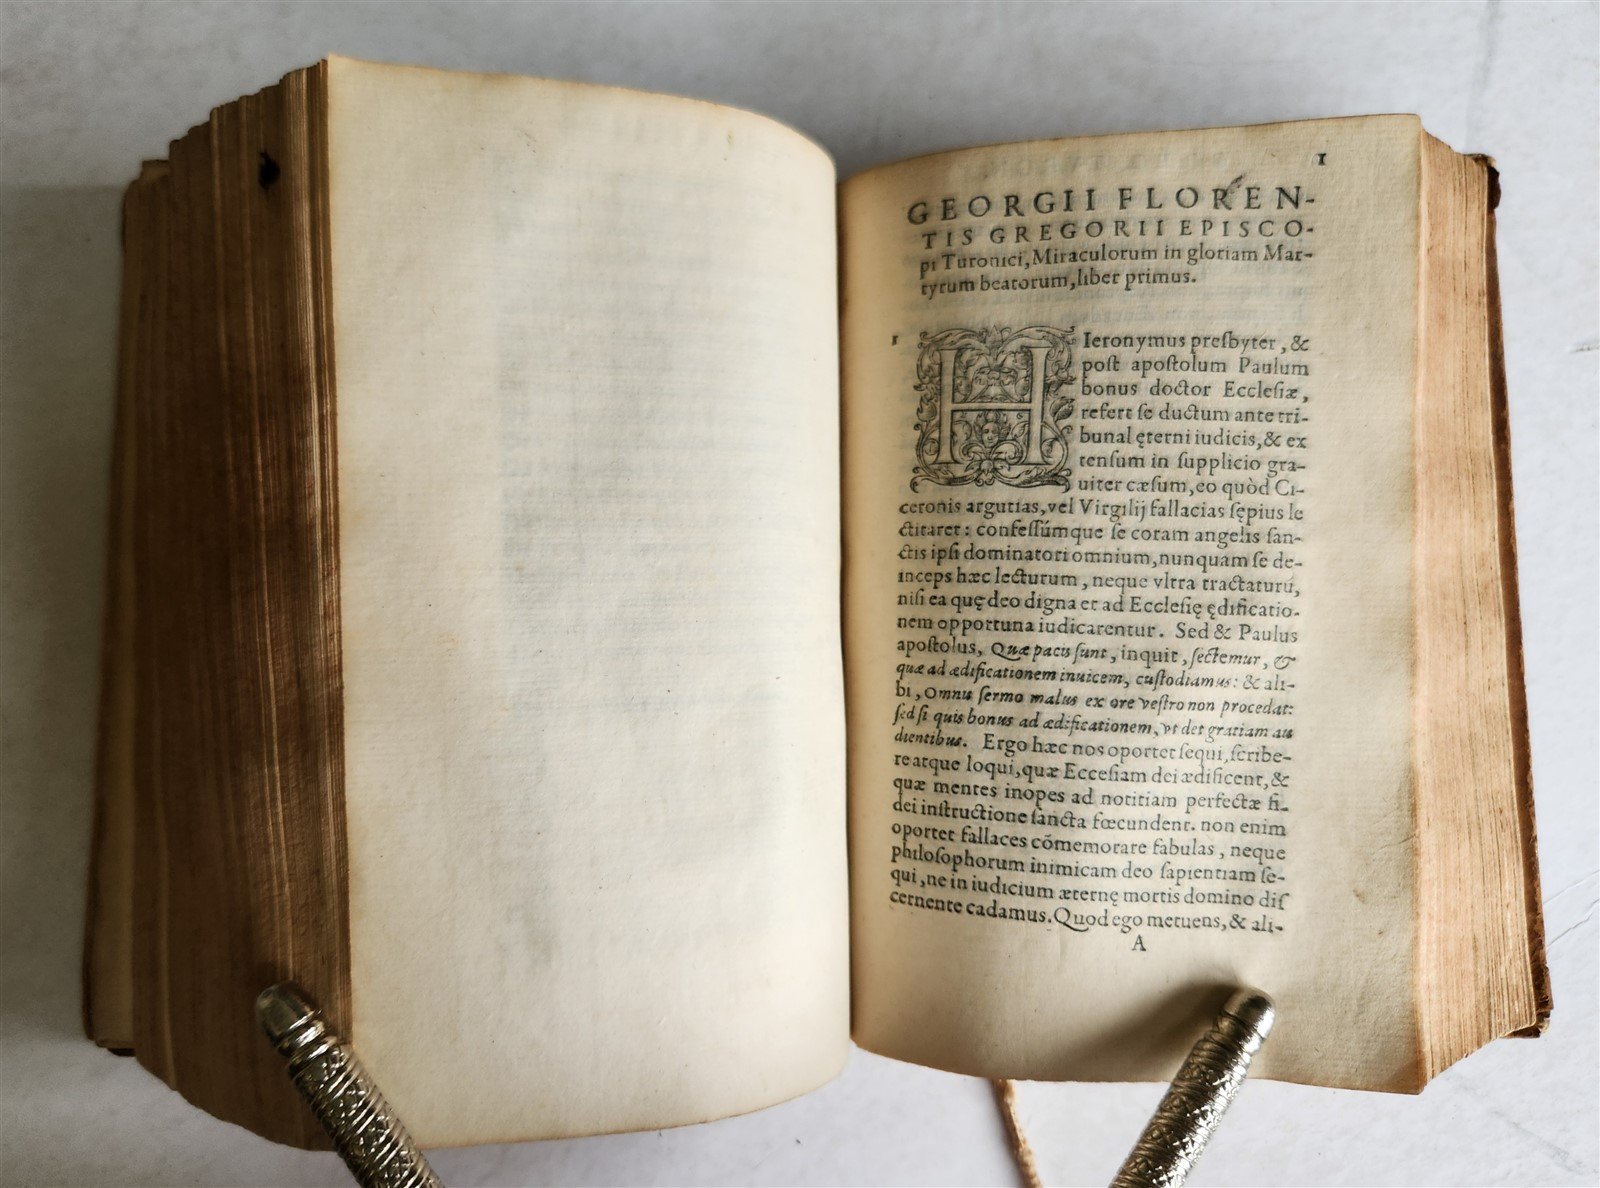 1
GEORGII FLOREN-
TIS GREGORII EPISCO-
pi Turonici, Miraculorum in gloriam Mar-
tyrum beatorum, liber primus.
1
HIeronymus presbyter, &
post apostolum Paulum
bonus doctor Ecclesiæ,
refert se ductum ante tri-
bunal ęterni iudicis, & ex
tensum in supplicio gra-
uiter cæsum, eo quòd Ci-
ceronis argutias, vel Virgilij fallacias sępius le
ctitaret: confessúmque se coram angelis san-
ctis ipsi dominatori omnium, nunquam se de-
inceps hæc lecturum, neque vltra tractaturū,
nisi ea quę deo digna et ad Ecclesię ędificatio-
nem opportuna iudicarentur. Sed & Paulus
apostolus, Quæ pacis sunt, inquit, sectemur, &
quæ ad ædificationem inuicem, custodiamus: & ali-
bi, Omnis sermo malus ex ore vestro non procedat:
sed si quis bonus ad ædificationem, vt det gratiam au
dientibus. Ergo hæc nos oportet sequi, scribe-
re atque loqui, quæ Eccesiam dei ædificent, &
quæ mentes inopes ad notitiam perfectæ fi-
dei instructione sancta fœcundent. non enim
oportet fallaces cōmemorare fabulas, neque
philosophorum inimicam deo sapientiam se-
qui, ne in iudicium æternę mortis domino dis
cernente cadamus. Quod ego metuens, & ali-
A